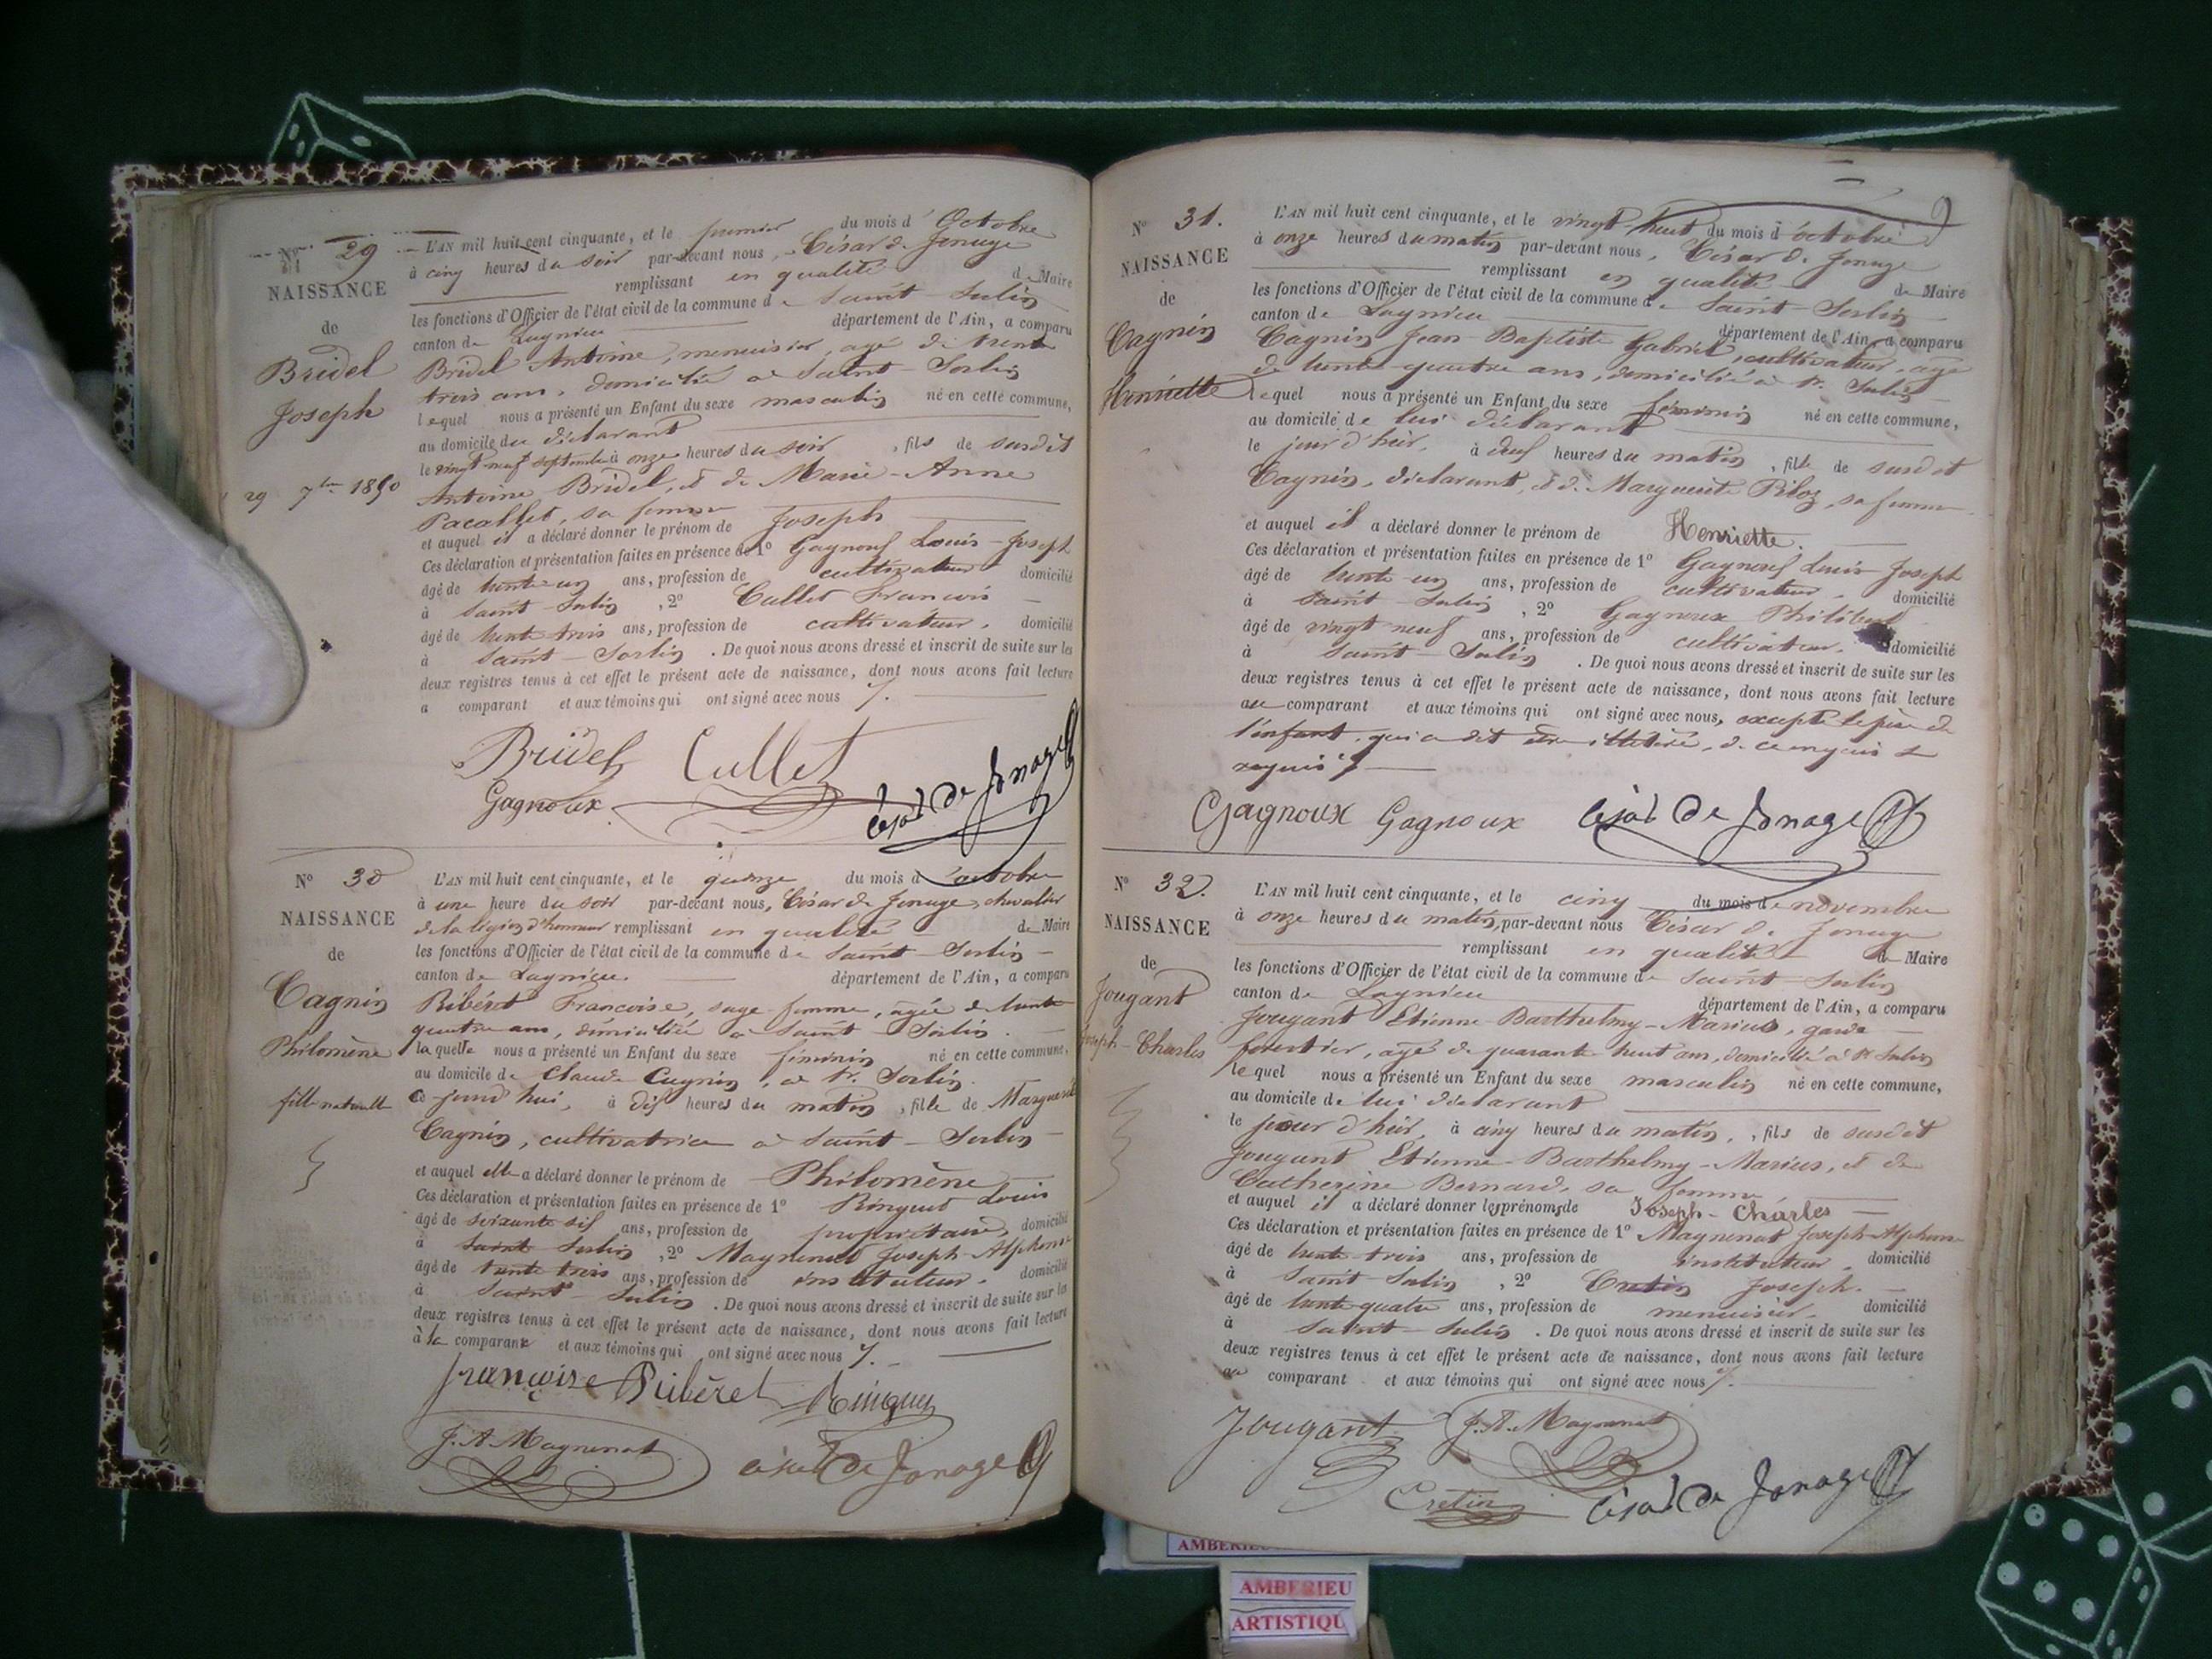 N° 29
NAISSANCE
de
Bridel
Joseph
29 7bre 1850
L'AN mil huit cent cinquante, et le premier du mois d'Octobre
à cinq heures du soir par-devant nous, César de Jonage
remplissant en qualité de Maire
les fonctions d'Officier de l'état civil de la commune de Saint-Sorlin
canton de Lagnieu département de l'Ain, a comparu
Bridel Antoine, menuisier, agé de trente
trois ans, domicilié à Saint-Sorlin
lequel nous a présenté un Enfant du sexe masculin né en cette commune,
au domicile du déclarant
le vingt neuf septembre à onze heures du soir, fils de susdit
Antoine Bridel, et de Marie-Anne
Pacallet, sa femme
et auquel il a déclaré donner le prénom de Joseph
Ces déclaration et présentation faites en présence de 1° Gagneux Louis-Joseph
âgé de trente-un ans, profession de cultivateur domicilié
à Saint-Sorlin, 2° Cullet Francois
âgé de trente-trois ans, profession de cultivateur, domicilié
à Saint-Sorlin. De quoi nous avons dressé et inscrit de suite sur les
deux registres tenus à cet effet le présent acte de naissance, dont nous avons fait lecture
a comparant et aux témoins qui ont signé avec nous
Bridel Cullet
Gagnoux césar de Jonage
N° 30
NAISSANCE
de
Cagnin
Philomène
fille naturelle
L'AN mil huit cent cinquante, et le quinze du mois d'octobre
à une heure du soir par-devant nous, César de Jonage, chevalier
de la légion d'honneur remplissant en qualité de Maire
les fonctions d'Officier de l'état civil de la commune de Saint-Sorlin
canton de Lagnieu département de l'Ain, a comparu
Ribéret Francoise, sage femme, agée de trente
quatre ans, domiciliée à Saint-Sorlin
laquelle nous a présenté un Enfant du sexe féminin né en cette commune,
au domicile de Claude Cagnin, à St. Sorlin
ce jourd'hui, à dix heures du matin, fille de Marguerite
Cagnin, cultivatrice à Saint-Sorlin
et auquel elle a déclaré donner le prénom de Philomène
Ces déclaration et présentation faites en présence de 1° Ringuet Louis
âgé de soixante six ans, profession de propriétaire, domicilié
à Saint Sorlin, 2° Magnenat Joseph-Alphonse
âgé de trente trois ans, profession de instituteur, domicilié
à Saint-Sorlin. De quoi nous avons dressé et inscrit de suite sur les
deux registres tenus à cet effet le présent acte de naissance, dont nous avons fait lecture
à la comparante et aux témoins qui ont signé avec nous
françoise Ribéret
J. A. Magnenat césar de Jonage
N° 31.
NAISSANCE
de
Cagnin
Henriette
L'AN mil huit cent cinquante, et le vingt-huit du mois d'octobre
à onze heures du matin par-devant nous, César de Jonage
remplissant en qualité de Maire
les fonctions d'Officier de l'état civil de la commune de Saint-Sorlin
canton de Lagnieu département de l'Ain, a comparu
Cagnin Jean-Baptiste Gabriel, cultivateur, agé
de trente-quatre ans, domicilié à St. Sorlin
lequel nous a présenté un Enfant du sexe féminin né en cette commune,
au domicile de lui déclarant
le jour d'hier, à neuf heures du matin, fille de susdit
Cagnin, déclarant, et de Marguerite Piloz, sa femme
et auquel il a déclaré donner le prénom de Henriette.
Ces déclaration et présentation faites en présence de 1° Gagneux Louis-Joseph
âgé de trente-un ans, profession de cultivateur, domicilié
à Saint-Sorlin, 2° Gagneux Philibert
âgé de vingt neuf ans, profession de cultivateur, domicilié
à Saint-Sorlin. De quoi nous avons dressé et inscrit de suite sur les
deux registres tenus à cet effet le présent acte de naissance, dont nous avons fait lecture
au comparant et aux témoins qui ont signé avec nous, excepté le père de
l'enfant, qui a dit être illétéré, de ce enquis et
requis
Gagnoux Gagnoux césar de Jonage
N° 32.
NAISSANCE
de
Jougant
Joseph-Charles
L'AN mil huit cent cinquante, et le cinq du mois de novembre
à onze heures du matin, par-devant nous César de Jonage
remplissant en qualité de Maire
les fonctions d'Officier de l'état civil de la commune de Saint-Sorlin
canton de Lagnieu département de l'Ain, a comparu
Jougant Etienne Barthelmy-Marius, garde
forestier, agé de quarante huit ans, domicilié à St Sorlin
lequel nous a présenté un Enfant du sexe masculin né en cette commune,
au domicile de lui déclarant
le jour d'hier, à cinq heures du matin, fils de susdit
Jougant Etienne-Barthelmy-Marius, et de
Catherine Bernard, sa femme
et auquel il a déclaré donner les prénoms de Joseph-Charles
Ces déclaration et présentation faites en présence de 1° Magnenat Joseph-Alphonse
âgé de trente-trois ans, profession de instituteur, domicilié
à Saint-Sorlin, 2° Cretin Joseph.
âgé de trente-quatre ans, profession de menuisier. domicilié
à Saint-Sorlin. De quoi nous avons dressé et inscrit de suite sur les
deux registres tenus à cet effet le présent acte de naissance, dont nous avons fait lecture
au comparant et aux témoins qui ont signé avec nous
Jougant J. A. Magnenat
Cretin césar de Jonage
AMBERIEU
ARTISTIQU